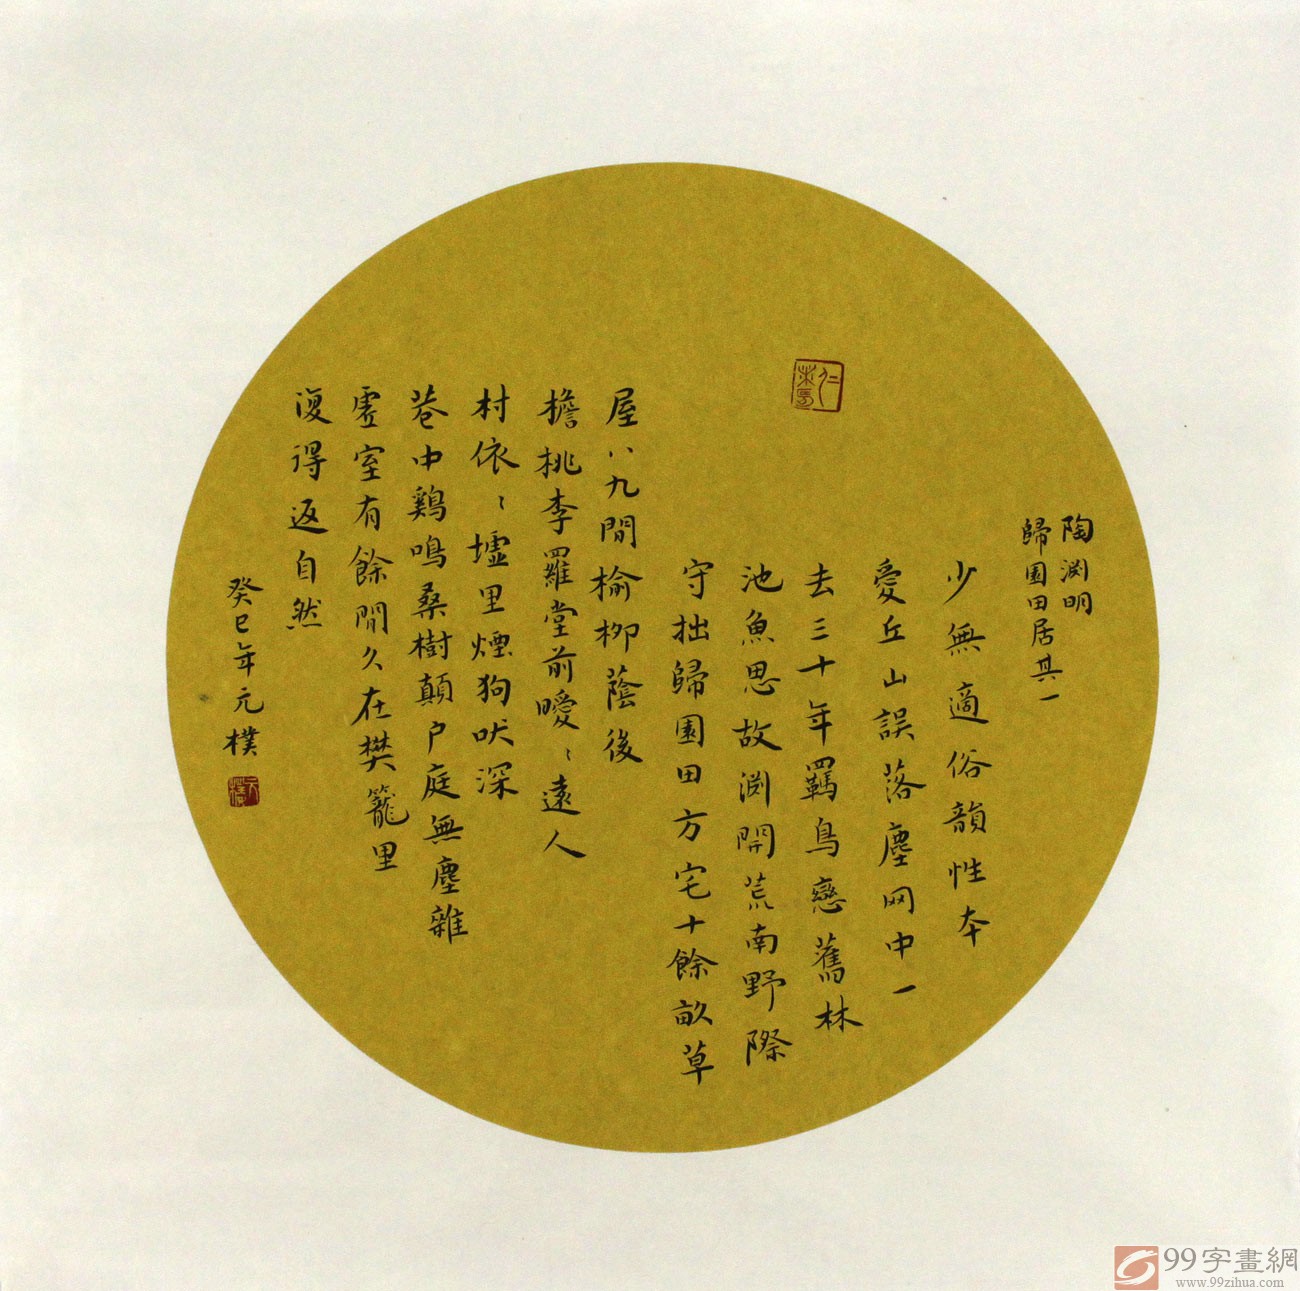 陶渊明
歸園田居其一
少無適俗韻性本
愛丘山誤落塵网中一
去三十年羈鳥戀舊林
池魚思故渊開荒南野際
守拙歸園田方宅十餘畝草
屋八九間榆柳蔭後
檐桃李羅堂前曖〻遠人
村依〻墟里煙狗吠深
巷中鷄鳴桑樹顛户庭無塵雜
虛室有餘閒久在樊籠里
復得返自然
癸巳年元樸
99字畫網
www.99zihua.com